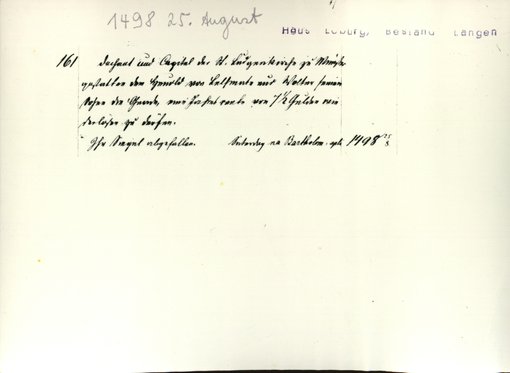 1498 25. August
Haus Loburg, Bestand Langen
161 Dechant und Capitel der St. Ludgerikirche zu Münster
gestatten dem Gerwold von und Wolter seinem
Sohne die Gnade, eine Rente von 7 1/2 Gulden wie
zu dürfen.
Ihr Siegel abgefallen. Saterdag na Bartholom. 1498 25/8